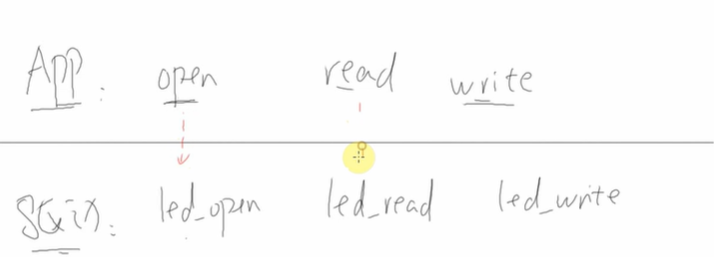 App: open read write
led_open led_read led_write